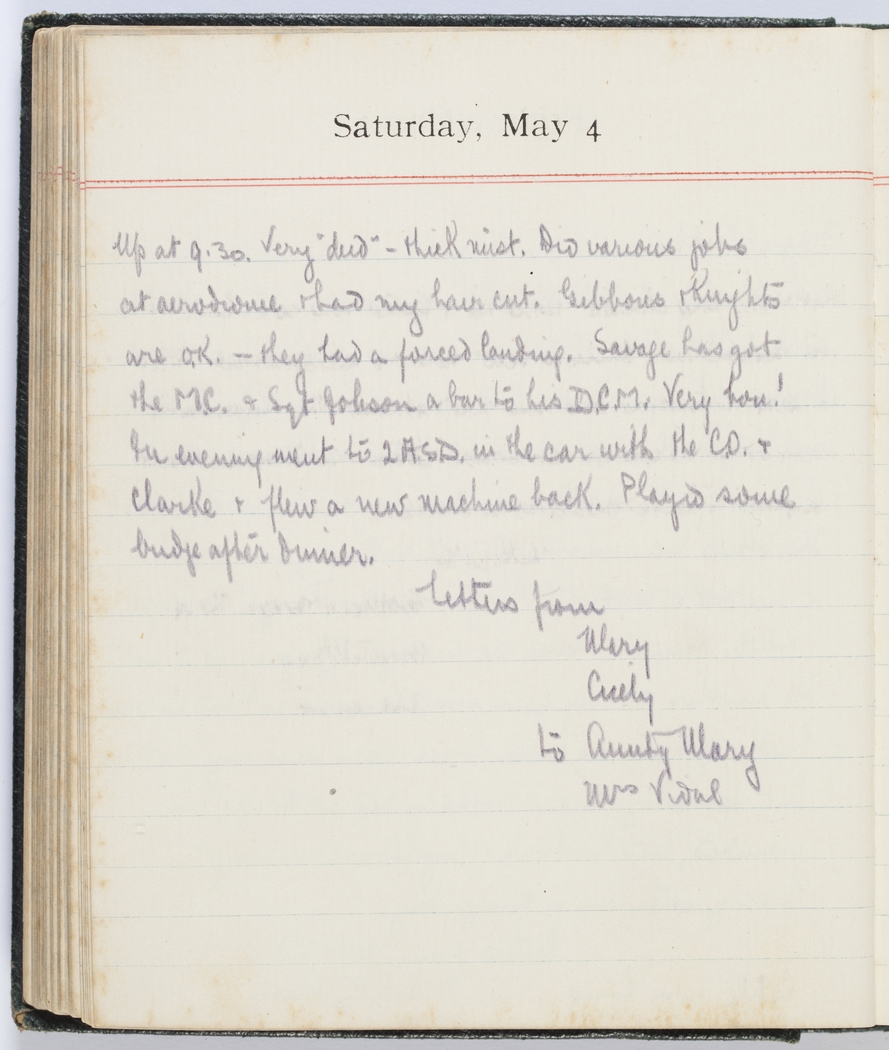 Saturday, May 4
Up at 9.30. Very "dud" - thick mist. Did various jobs
at aerodrome & had my hair cut. Gibbons & Knights
are O.K. — they had a forced landing. Savage has got
the M.C. & Sgt Johson a bar to his D.C.M. Very bon!
In evening went to 2 A.S.D. in the car with the C.O. &
Clarke & flew a new machine back. Played some
bridge after dinner.
Letters from
Mary
Cicely
to Aunty Mary
Mrs Vidal